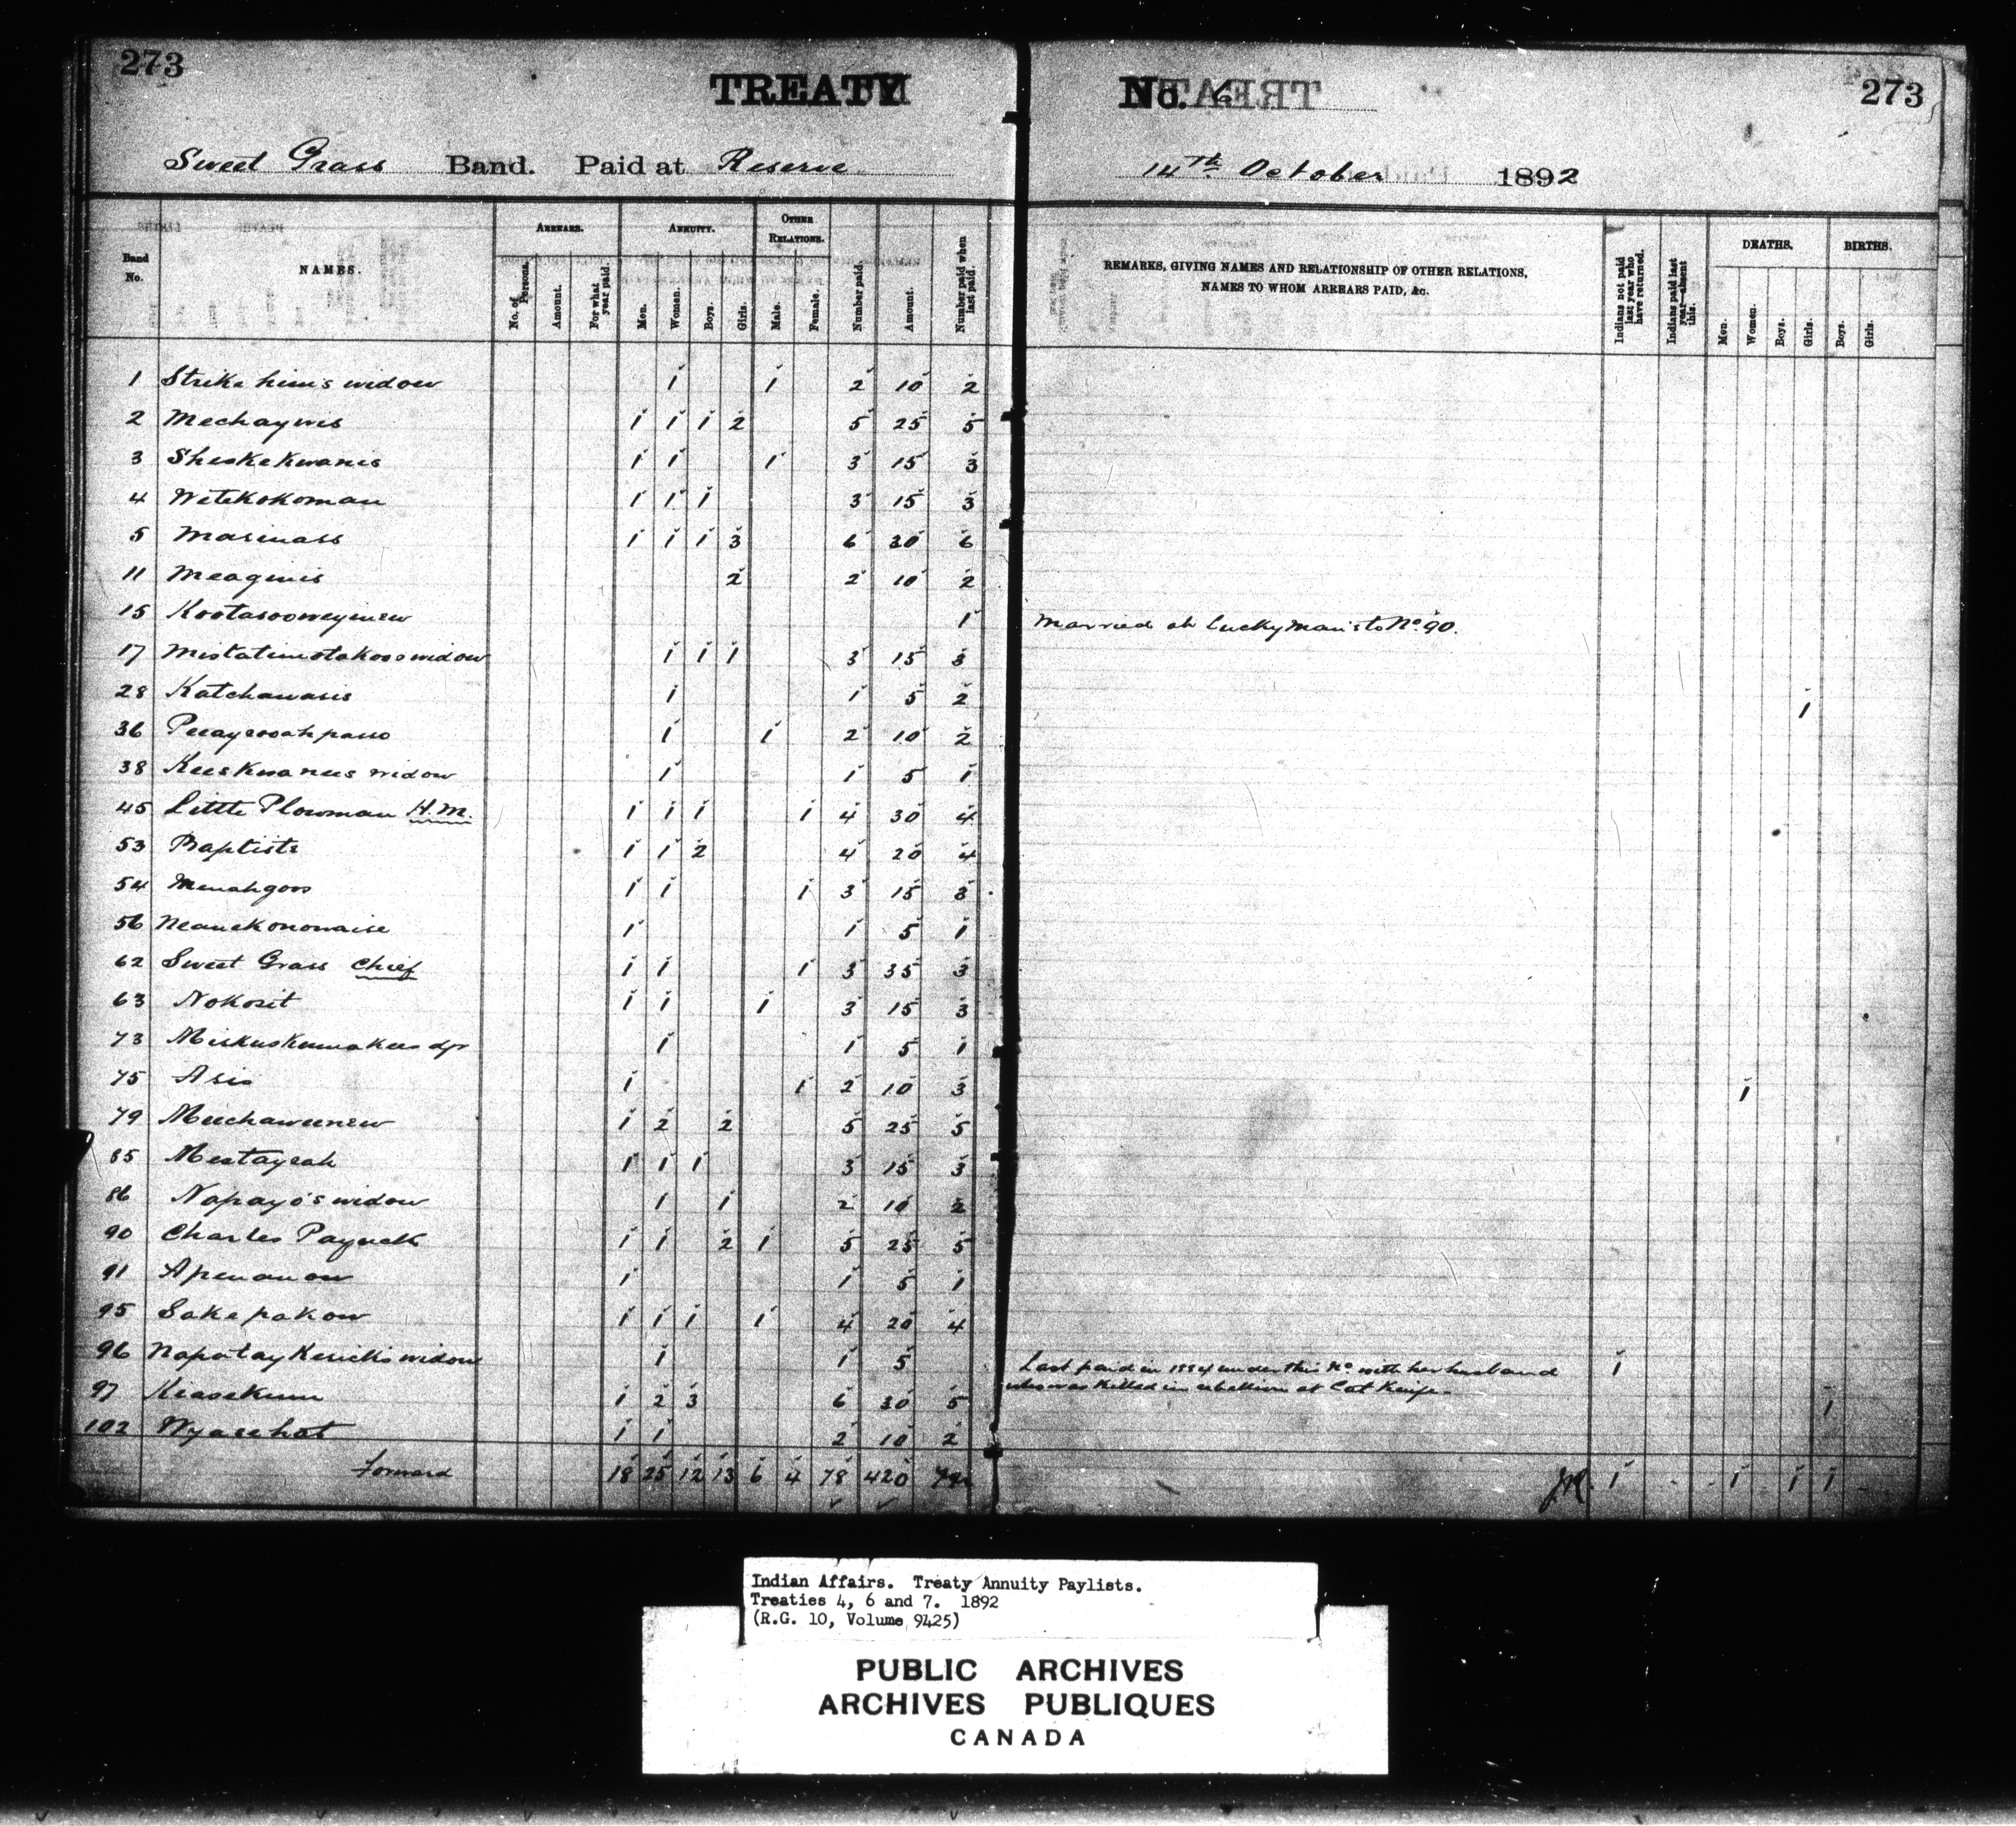 273
TREATY No. 6
273
Sweet Grass Band. Paid at Reserve 14th October 1892
Band No.
NAMES.
ARREARS.
No. of Persons.
Amount.
For what year paid.
ANNUITY.
Men.
Women.
Boys.
Girls.
OTHER RELATIONS.
Male.
Female.
Number paid.
Amount.
Number paid when last paid.
REMARKS, GIVING NAMES AND RELATIONSHIP OF OTHER RELATIONS, NAMES TO WHOM ARREARS PAID, &c.
Indians not paid last year who have returned.
Indians paid last year—absent this.
DEATHS.
Men.
Women.
Boys.
Girls.
BIRTHS.
Boys.
Girls.
1 Strike him's widow 1 1 2 10 2
2 Mechaywis 1 1 1 2 5 25 5
3 Sheskekwanis 1 1 1 3 15 3
4 Wetekokoman 1 1 1 3 15 3
5 Masinass 1 1 1 3 6 30 6
11 Meaginis 2 2 10 2
15 Kootasooweyinew 1 Married at Luckyman's to No. 90.
17 Mistatimotakoos widow 1 1 1 3 15 3
28 Katchawasis 1 1 5 2 1
36 1 1 2 10 2
38 Keeskwanees widow 1 1 5 1
45 Little Plowman H.M. 1 1 1 1 4 30 4
53 Baptiste 1 1 2 4 20 4
54 Menahgoos 1 1 1 3 15 3
56 Neanekonowaise 1 1 5 1
62 Sweet Grass Chief 1 1 1 3 35 3
63 Nokosit 1 1 1 3 15 3
73 1 1 5 1
75 Asis 1 1 2 10 3 1
79 Meechaweenew 1 2 2 5 25 5
85 Mestaysah 1 1 1 3 15 3
86 Napayo's widow 1 1 2 10 2
90 Charles Payuck 1 1 2 1 5 25 5
91 Apenanow 1 1 5 1
95 Sakepakow 1 1 1 1 4 20 4
96 widow 1 1 5 Last paid in 1884 under this No with her husband 1
who was killed in rebellion at Cut Knife.
97 Keasekum 1 2 3 6 30 5 1
102 Wyasehat 1 1 2 10 2
Forward 18 25 12 13 6 4 78 420 1 1 1 1
Indian Affairs. Treaty Annuity Paylists.
Treaties 4, 6 and 7. 1892
(R.G. 10, Volume 9425)
PUBLIC ARCHIVES
ARCHIVES PUBLIQUES
CANADA